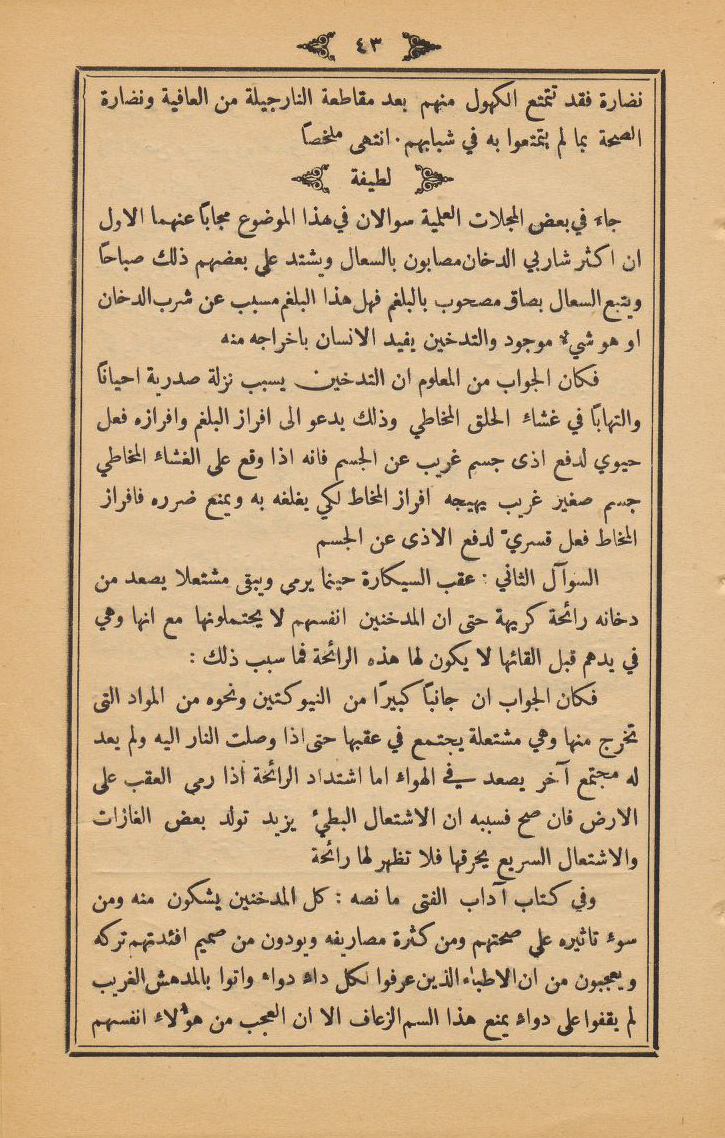 ٤٣
نضارة فقد تتمتع الكهول منهم بعد مقاطعة النارجيلة من العافية ونضارة
الصحة بما لم يتمتعوا به في شبابهم. انتهى ملخصاً
لطيفة
جاء في بعض المجلات العلمية سوالان في هذا الموضوع مجاباً عنهما الاول
ان اكثر شاربي الدخان مصابون بالسعال ويشتد على بعضهم ذلك صباحاً
ويتبع السعال بصاق مصحوب بالبلغم فهل هذا البلغم مسبب عن شرب الدخان
او هو شيء موجود والتدخين يفيد الانسان باخراجه منه
فكان الجواب من المعلوم ان التدخين يسبب نزلة صدرية احياناً
والتهاباً في غشاء الحلق المخاطي وذلك يدعو الى افراز البلغم وافرازه فعل
حيوي لدفع اذى جسم غريب عن الجسم فانه اذا وقع على الغشاء المخاطي
جسم صغير غريب يهيجه افراز المخاط لكي يغلفه به ويمنع ضرره فافراز
المخاط فعل قسريّ لدفع الاذى عن الجسم
السوآل الثاني : عقب السيكارة حينما يرمى ويبقى مشتعلا يصعد من
دخانه رائحة كريهة حتى ان المدخنين انفسهم لا يحتملونها مع انها وهي
في يدهم قبل القائها لا يكون لها هذه الرائحة فما سبب ذلك :
فكان الجواب ان جانباً كبيراً من النيوكتين ونحوه من المواد التى
تخرج منها وهي مشتعلة يجتمع في عقبها حتى اذا وصلت النار اليه ولم يعد
له مجتمع آخر يصعد في الهواء اما اشتداد الرائحة اذا رمى العقب على
الارض فان صح فسببه ان الاشتعال البطيء يزيد تولد بعض الغازات
والاشتعال السريع يحرقها فلا تظهر لها رائحة
وفي كتاب آداب الفتى ما نصه : كل المدخنين يشكون منه ومن
سوء تاثيره على صحتهم ومن كثرة مصاريفه ويودون من صميم افئدتهم تركه
ويعجبون من ان الاطباء الذين عرفوا لكل داء دواء واتوا بالمدهش الغريب
لم يقفوا على دواء يمنع هذا السم الزعاف الا ان العجب من هؤلاء انفسهم